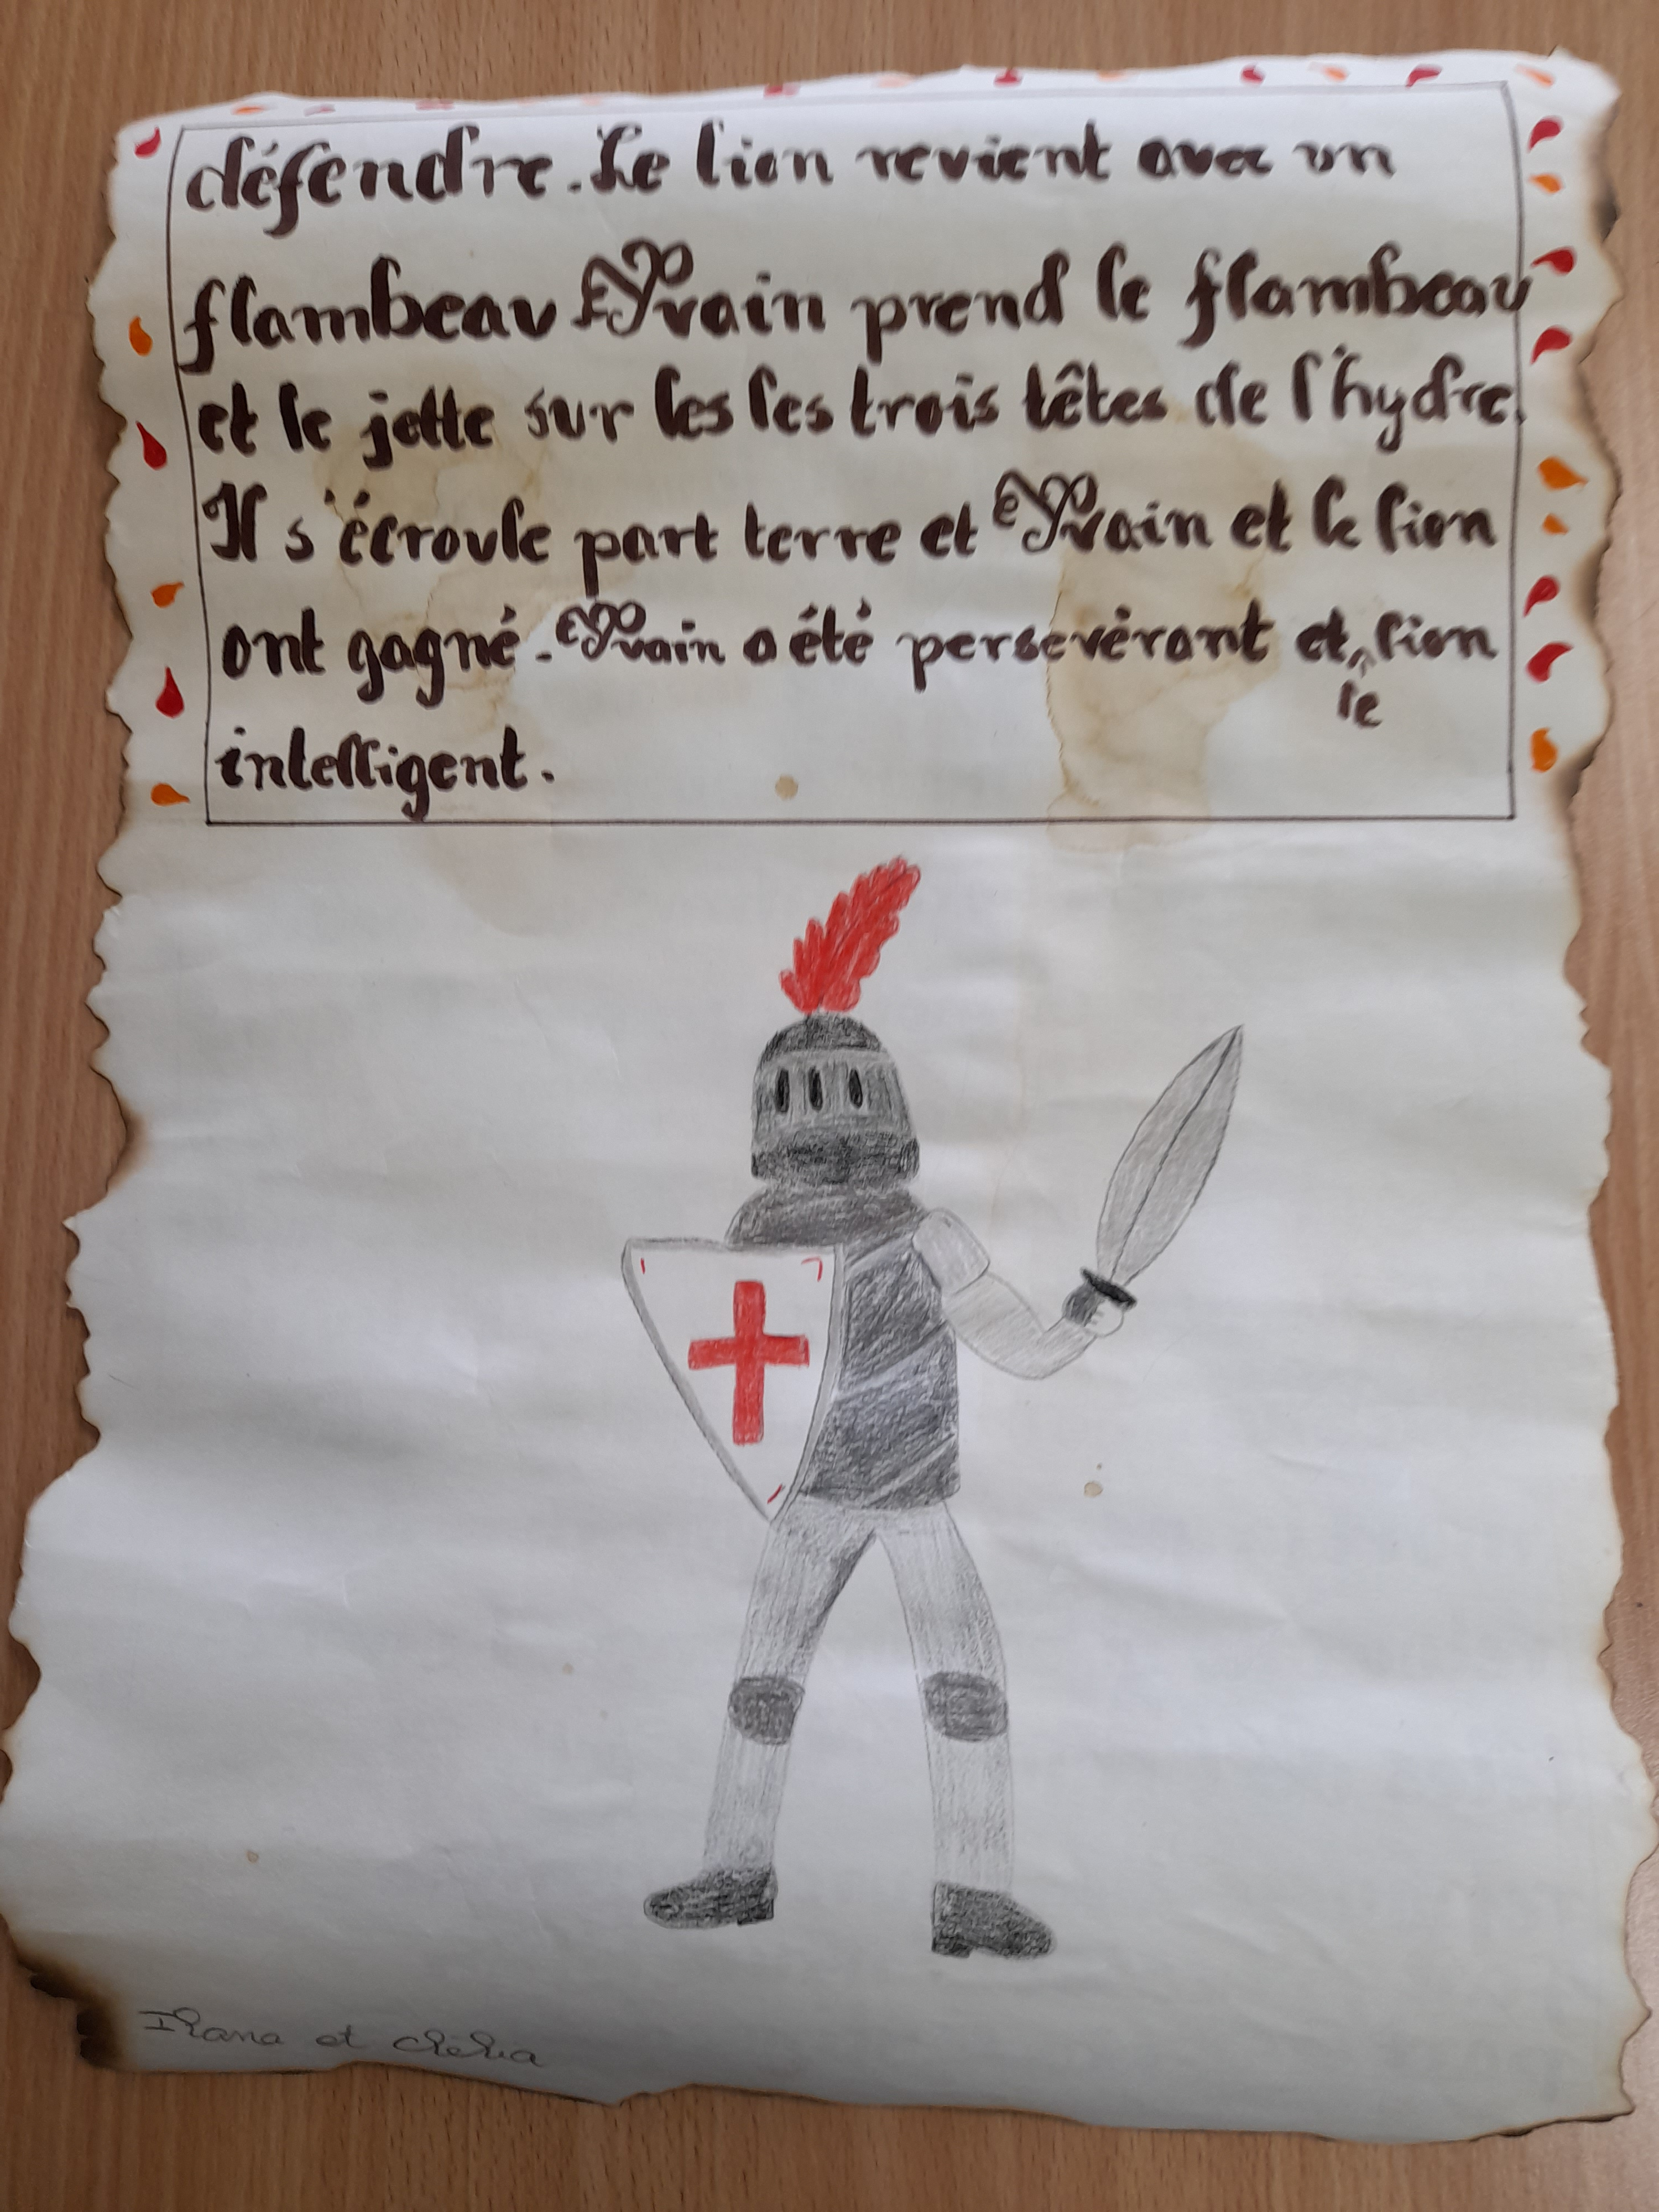 défendre. Le lion revient avec un
flambeau Yvain prend le flambeau
et le jette sur les les trois têtes de l'hydre.
Il s'écroule part terre et Yvain et le lion
ont gagné. Yvain a été persevérant et le lion
intelligent.
Ilana et Clélia